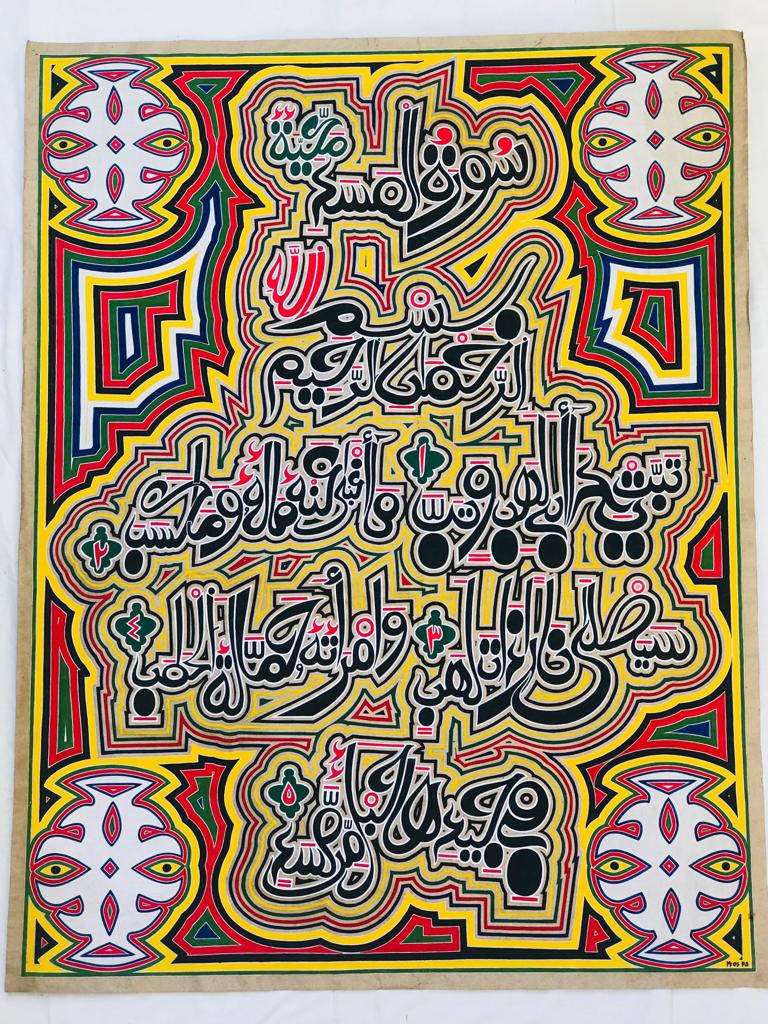 سُورَةُ الْمَسَدِ مَكِّيَّةٌ
بِسْمِ اللَّهِ
الرَّحْمَٰنِ الرَّحِيمِ
تَبَّتْ يَدَا أَبِي لَهَبٍ وَتَبَّ ١ مَا أَغْنَىٰ عَنْهُ مَالُهُ وَمَا كَسَبَ ٢
سَيَصْلَىٰ نَارًا ذَاتَ لَهَبٍ ٣ وَامْرَأَتُهُ حَمَّالَةَ الْحَطَبِ ٤
فِي جِيدِهَا حَبْلٌ مِّن مَّسَدٍ ٥